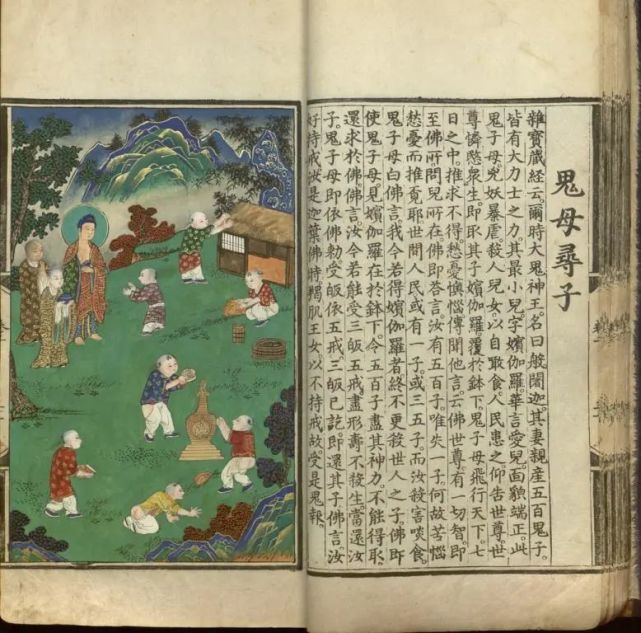 鬼母尋子
雜寶藏經云。爾時大鬼神王。名曰般闍迦。其妻親產五百鬼子。
皆有大力士之力。其最小兒。字嬪伽羅。華言愛兒。面貌端正。此
鬼子母兇妖暴虐。殺人兒女。以自啖食。人民患之。仰告世尊。世
尊憐愍衆生。即取其子嬪伽羅。覆於鉢下。鬼子母飛行天下。七
日之中。推求不得。愁憂懊惱。傳聞他言。云佛世尊。有一切智。即
至佛所。問兒所在。佛即答言。汝有五百子。唯失一子。何故苦惱
愁憂而推覓耶。世間人民。或有一子。或三五子。而汝殺害啖食。
鬼子母白佛言。我今若得嬪伽羅者。終不更殺世人之子。佛即
使鬼子母見嬪伽羅在於鉢下。令五百子盡其神力。不能得取。
還求於佛。佛言汝今若能受三皈五戒。盡形壽不殺生。當還汝
子。鬼子母即依佛勅。受皈依五戒。三皈已訖。即還其子。佛言汝
好持戒。汝是迦葉佛時羯肌王女。以不持戒故。受是鬼報。